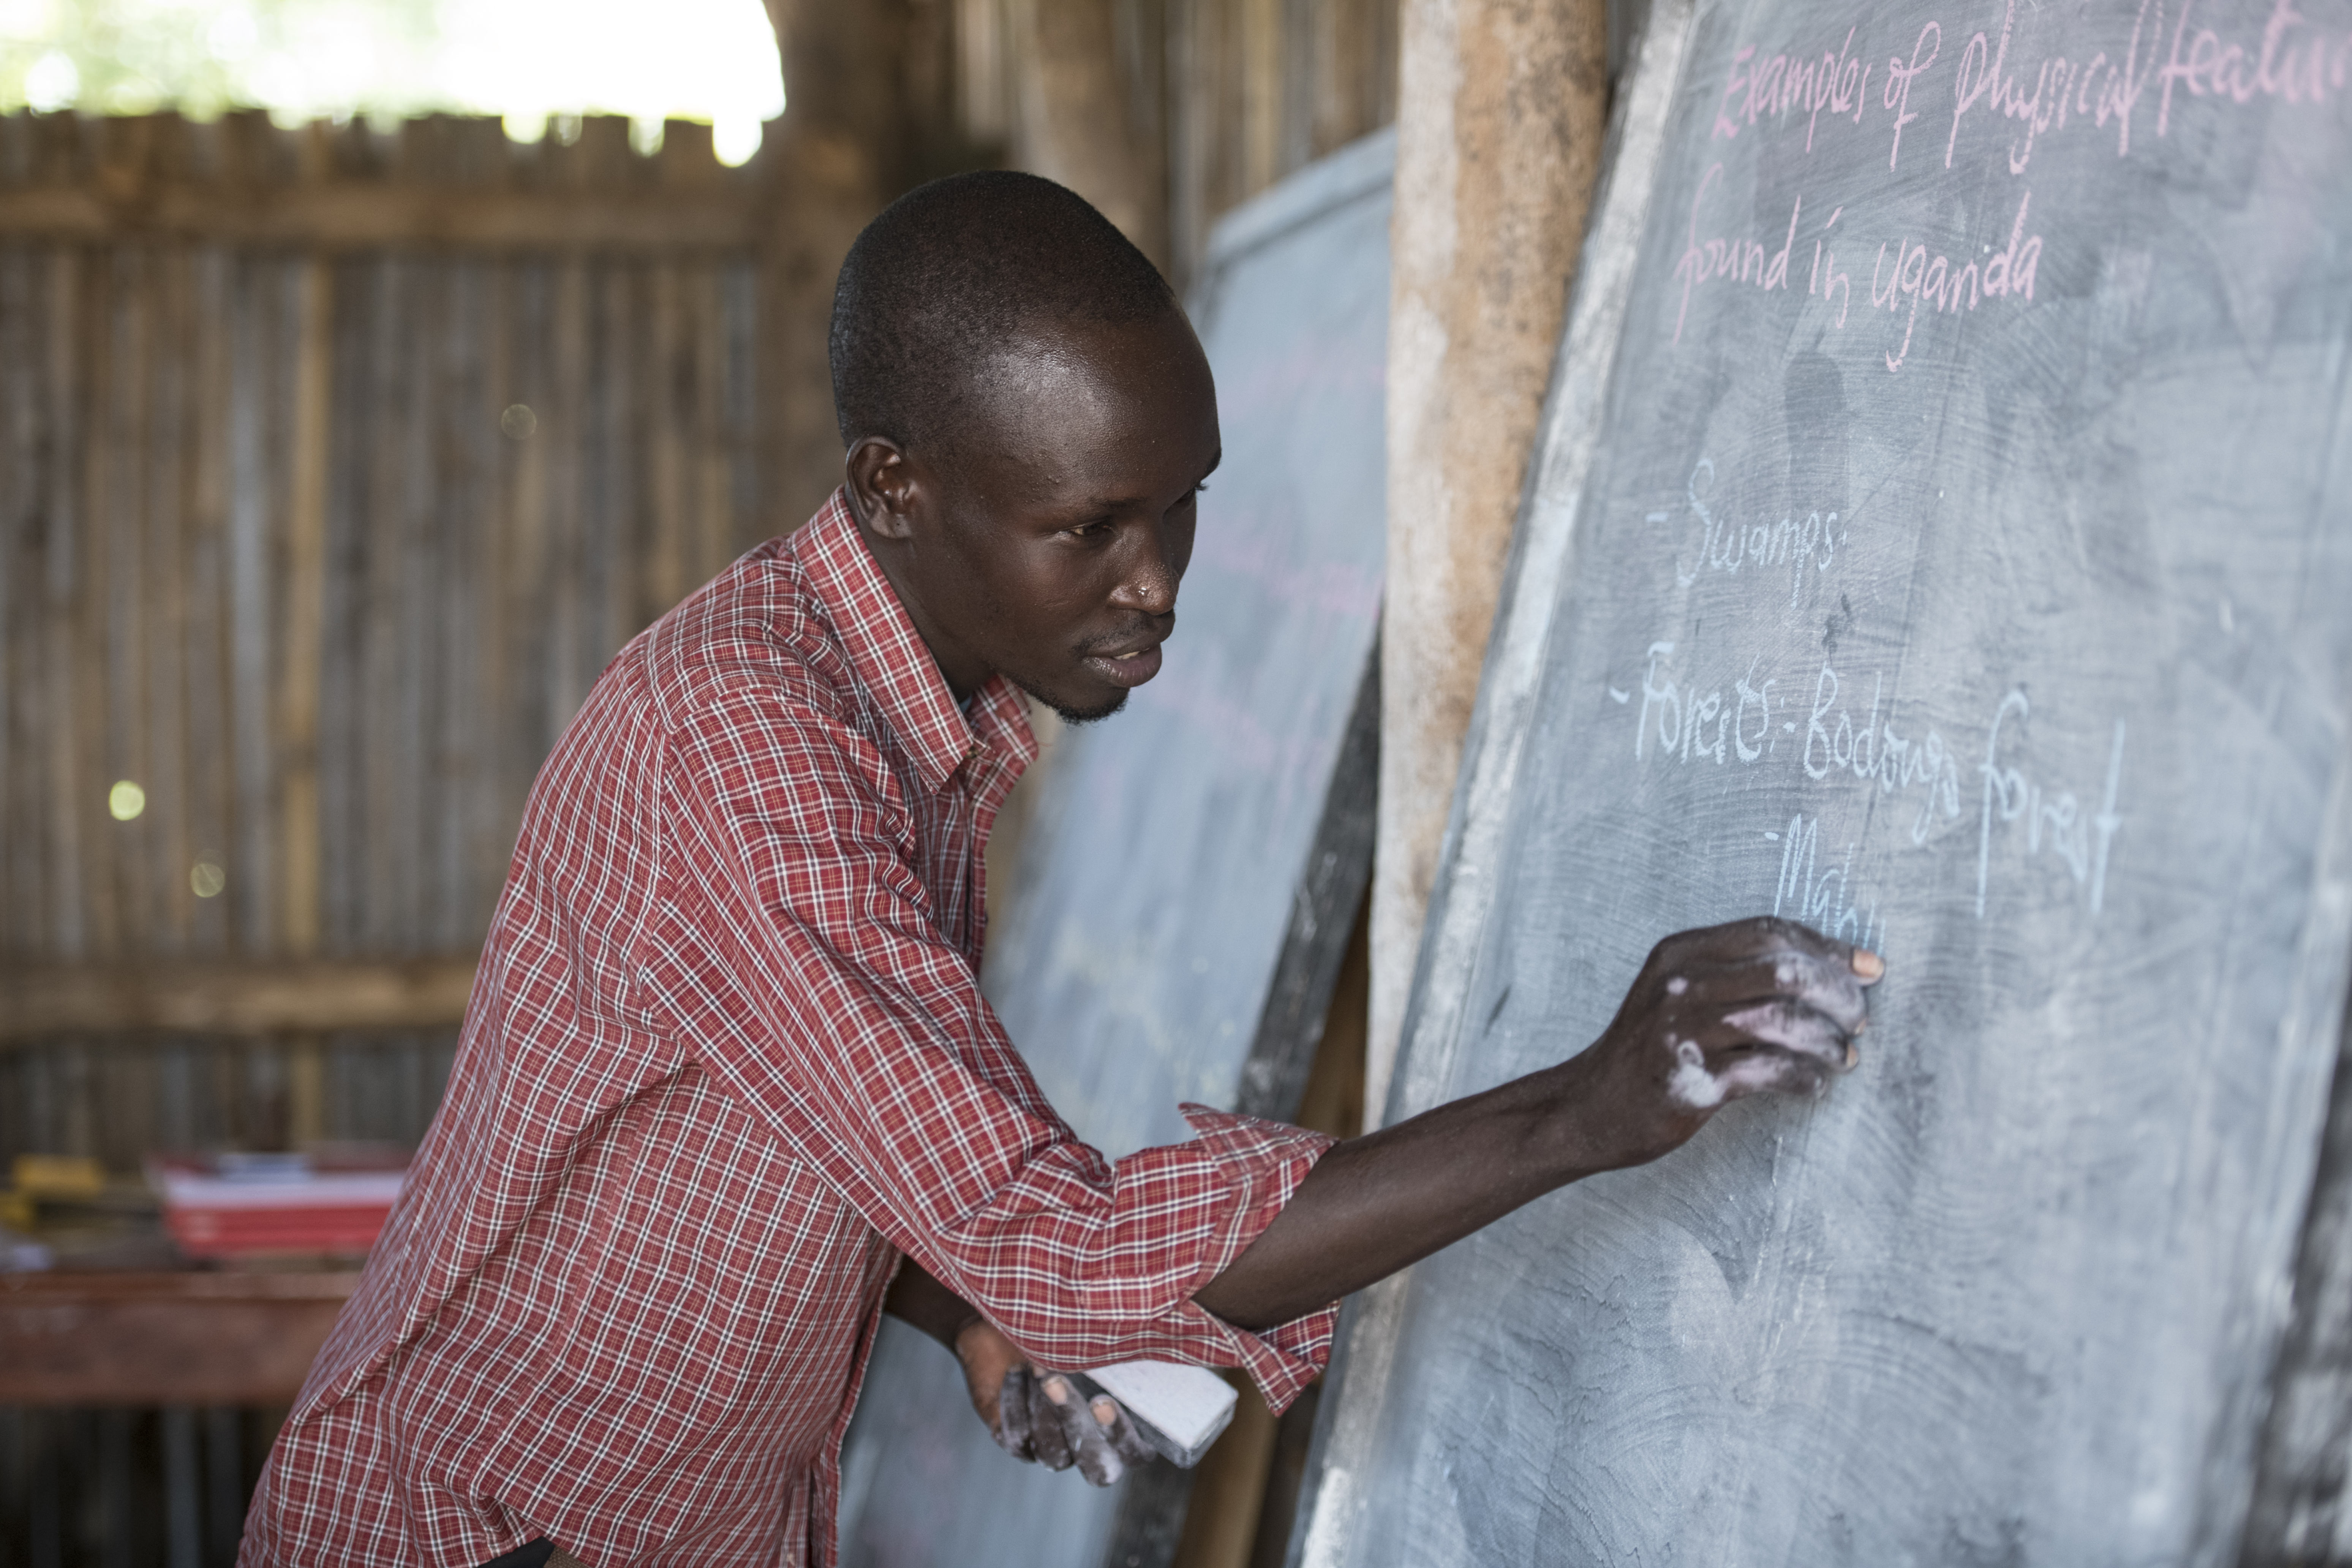 Examples of physical featur
found in Uganda
- Swamps.
- Forests:- Bodongo forest
- Mabi